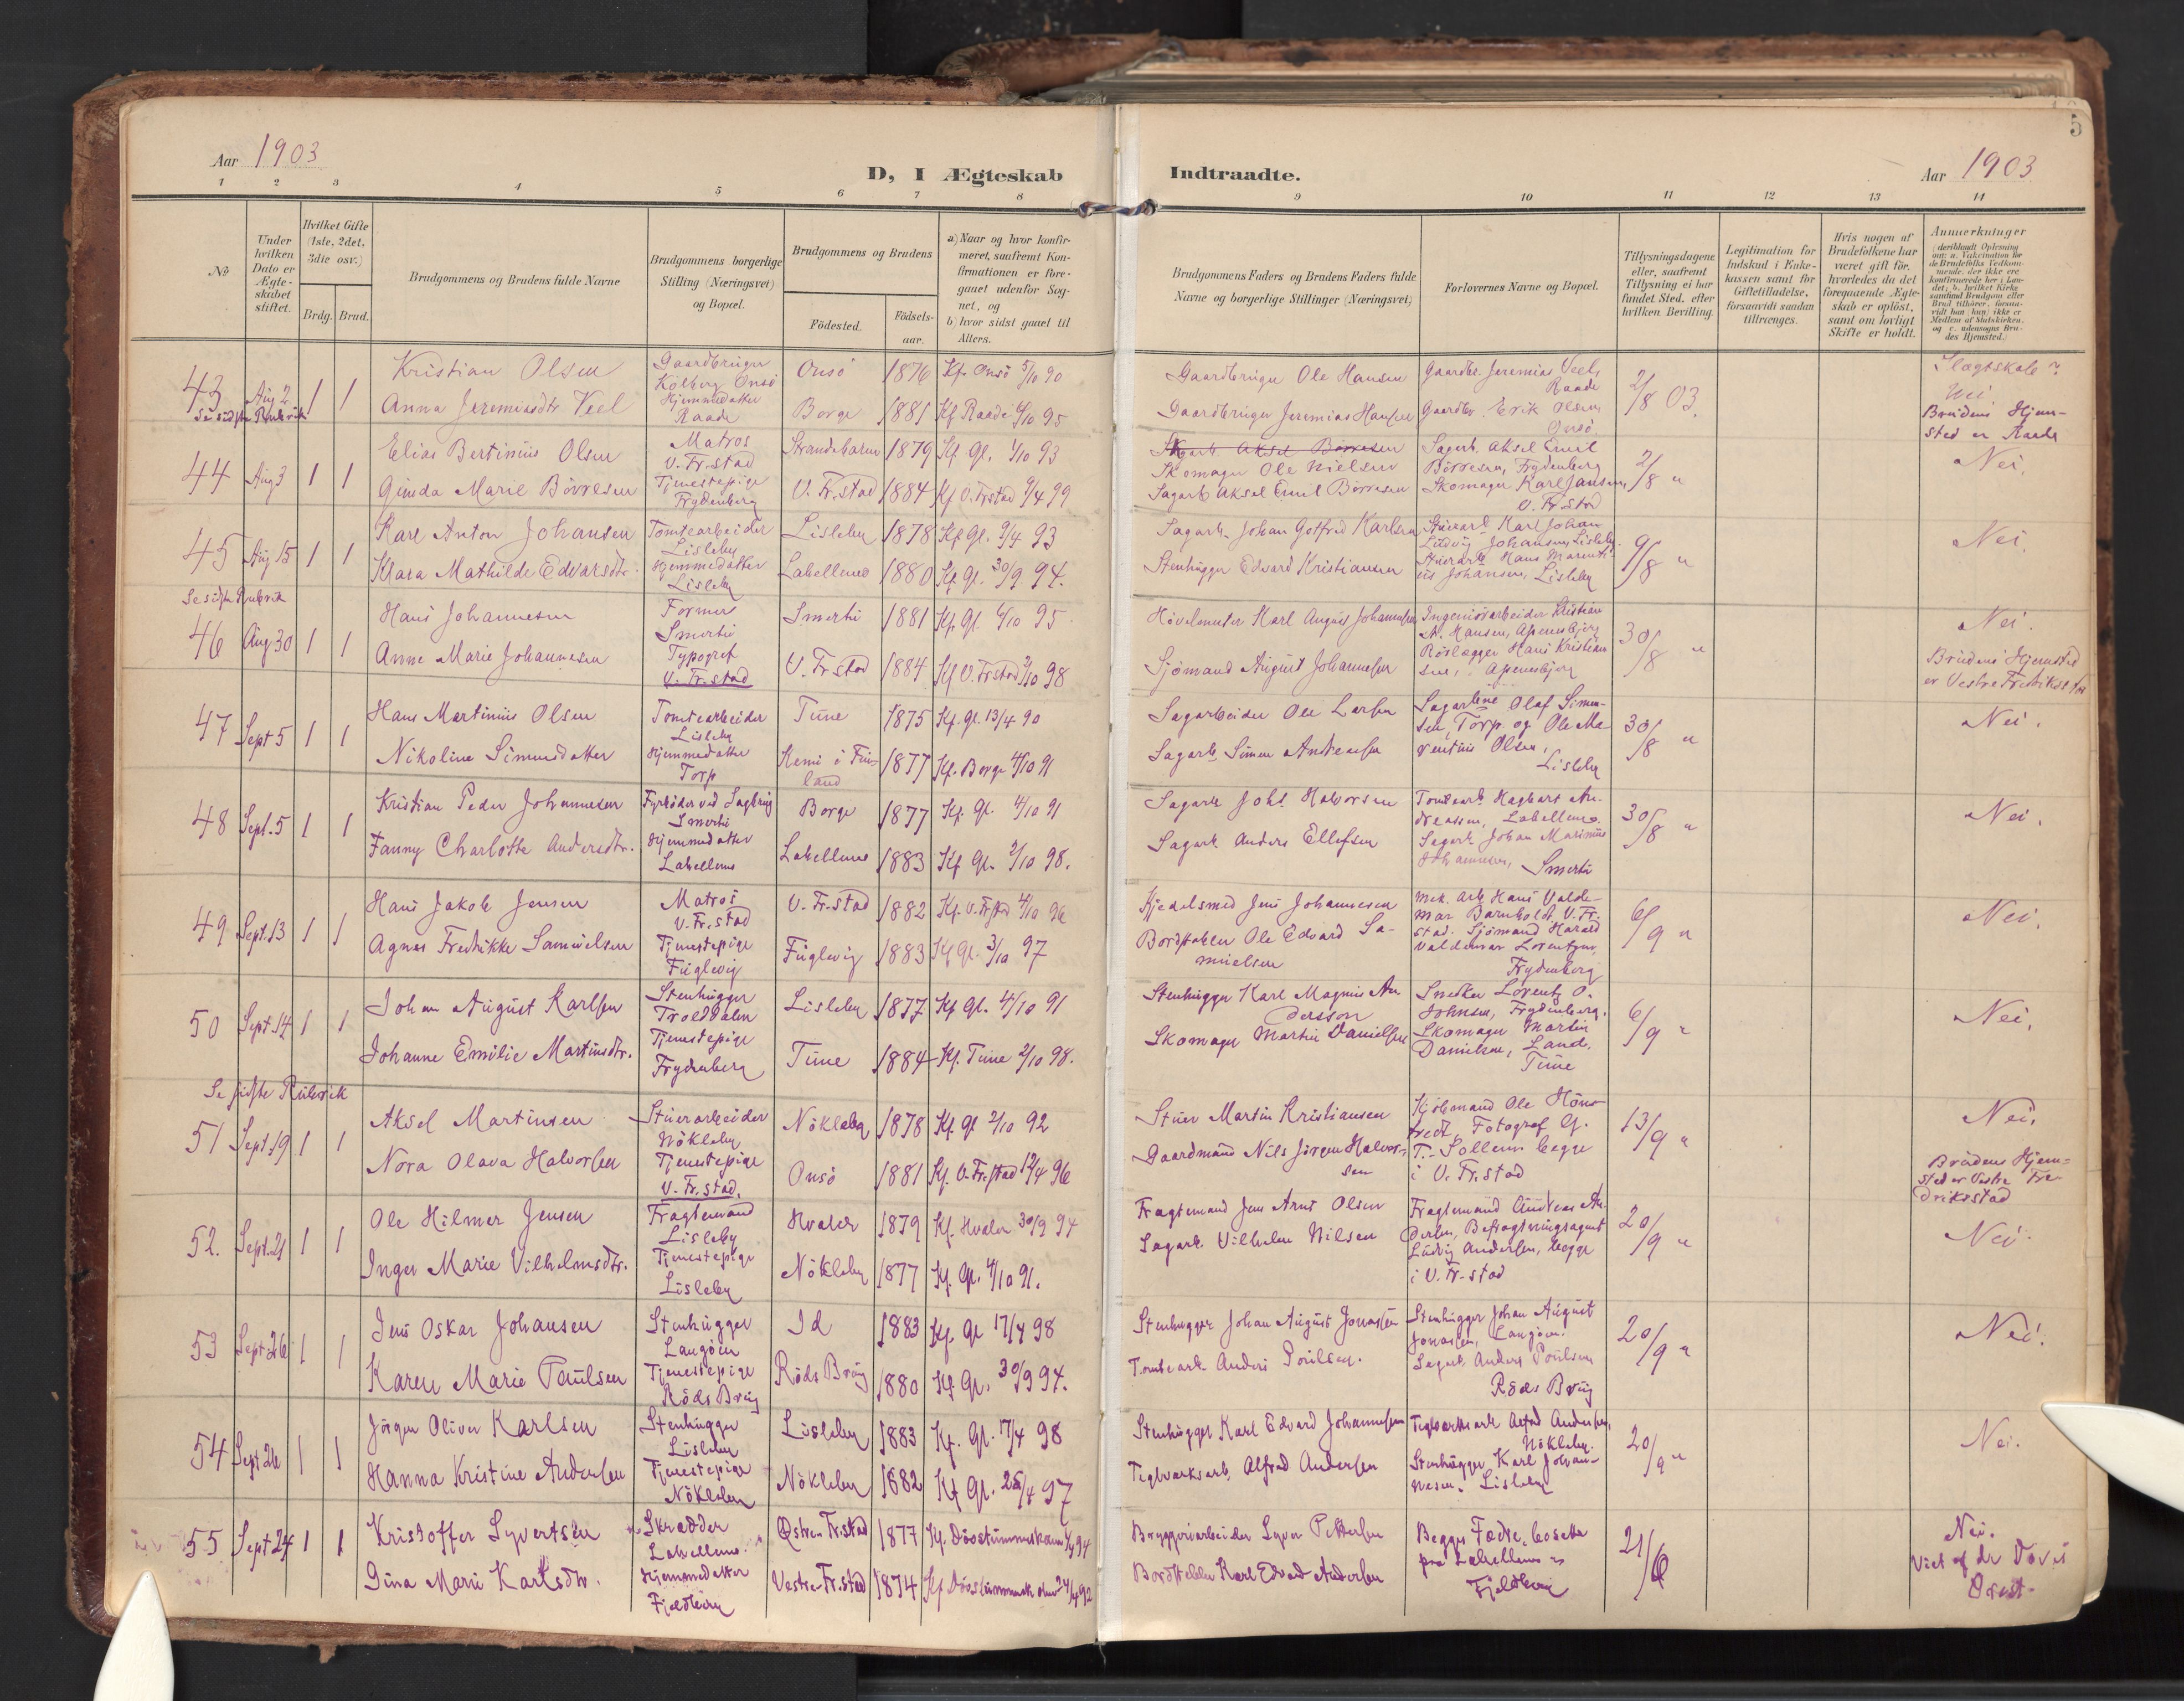 Aar 1903
D, I Ægteskab
Indtraadte.
Aar 1903
5
1 2 3 4 5 6 7 8 9 10 11 12 13 14
№
Under hvilken Dato er Ægteskabet stiftet.
Hvilket Gifte (1ste, 2det, 3die osv.)
Brdg. Brud.
Brudgommens og Brudens fulde Navne
Brudgommens borgerlige Stilling (Næringsvei) og Bopæl.
Brudgommens og Brudens
Fødested.
Fødselsaar.
a) Naar og hvor konfirmeret, saafremt Konfirmationen er foregaaet udenfor Sognet, og
b) hvor sidst gaaet til Alters.
Brudgommens Faders og Brudens Faders fulde Navne og borgerlige Stillinger (Næringsvei)
Forlovernes Navne og Bopæl.
Tillysningsdagene eller, saafremt Tillysning ei har fundet Sted, efter hvilken Bevilling.
Legitimation for Indskud i Enkekassen samt for Giftetilladelse, forsaavidt saadan tiltrænges.
Hvis nogen af Brudefolkene har været gift før, hvorledes da det foregaaende Ægteskab er opløst, samt om lovligt Skifte er holdt.
Anmærkninger (deriblandt Oplysning om: a. Vakcination for de Brudefolks Vedkommende, der ikke ere konfirmerede her i Landet; b. hvilket Kirkesamfund Brudgom eller Brud tilhører, forsaavidt han (hun) ikke er Medlem af Statskirken, og c. udensogns Brudes Hjemsted.)
43 Aug 2 1 1
Se sidste Rubrik
Kristian Olsen
Gaardbruger
Kolberg Onsö
Onsö 1876 Kf. Onsö 5/10 90
Gaardbruger Ole Hansen
Gaardbr. Jeremias Veel,
Raade
2/8 03.
Slægtskab?
Nei
Anna Jeremiasdtr Veel
Hjemmedatter
Raade
Borge 1881 Kf Raade 6/10 95
Gaardbruger Jeremias Hansen
Gaardbr. Erik Olsen,
Onsö
Brudens Hjem-
sted er Raade
44 Aug 3 1 1
Elias Bertinius Olsen
Matros
V. Fr.stad
1879 Kf. Gl. 1/10 93
Skomager Ole Nielsen
Sagarb. Aksel Emil
Börresen, Frydenberg
2/8 "
Nei.
Gunda Marie Börresen
Tjenestepige
Frydenberg
V. Fr.stad 1884 Kf V. Frstad 9/4 99
Sagarb Aksel Emil Börresen
Skomager Karl Jansen,
V. Fr stad
45 Aug 15 1 1
Karl Anton Johansen
Tomtearbeider
Lisleby
Lisleby 1878 Kf Gl. 9/4 93
Sagarb. Johan Gotfred Karlsen
Stuerarb Karl Johan
Ludvig Johansen, Lisleby.
9/8 "
Nei.
Klara Mathilde Edvarsdtr.
Hjemmedatter
Lisleby
Labellens 1880 Kf. Gl. 30/9 94.
Stenhugger Edvard Kristiansen
Stuerarb Hans Marenti-
us Johansen, Lisleby
Se sidste Rubrik
46 Aug 30 1 1
Hans Johannesen
Former
Smertu
Smertu 1881 Kf. Gl. 6/10 95
Hövelmester Karl August Johannesen
Ingeniörarbeider Kristian
A. Hansen, Apenesbjerg
30/8 "
Nei.
Anne Marie Johannesen
Typograf
V. Fr.stad
V. Fr stad 1884 Kf V. Frstad 2/10 98
Sjömand August Johannesen
Rörlægger Hans Kristian
sen, Apenesbjerg
Brudens Hjemsted
er Vestre Fredriksstad
47 Sept 5 1 1
Hans Martinius Olsen
Tomtearbeider
Lisleby
Tune 1875 Kf. Gl. 13/4 90
Sagarbeider Ole Larsen
Sagarbne Olaf Simen-
sen, Torp og Ole Ma-
30/8 "
Nei.
Nikoline Simensdatter
Hjemmedatter
Torp
Kemi i Fin-
land
1877 Kf. Borge 4/10 91
Sagarb Simen Andreassen
rentius Olsen,
Lisleby
48 Sept. 5 1 1
Kristian Peder Johannesen
Fyrböder ved Sagbrug
Smertu
Borge 1877 Kf. Gl. 4/10 91
Sagarb Johs Halvorsen
Tomtearb. Hagbart An-
dreassen, Labellens.
30/8 "
Nei.
Fanny Charlotte Andersdtr.
Hjemmedatter
Labellens
Labellens 1883 Kf Gl. 2/10 98.
Sagarb. Anders Ellefsen
Sagarb Johan Marinius
Johannesen, Smertu
49 Sept. 13 1 1
Hans Jakob Jensen
Matros
V. Fr. stad
V. Fr. stad 1882 Kf. V. Frstad 4/10 96
Kjedelsmed Jens Johannesen
Mek. Arb Hans Valde-
mar Barnholdt, V. Fr.
6/9 "
Nei.
Agnes Fredrikke Samuelsen
Tjenestepige
Fuglevig
Fuglevig 1883 Kf Gl. 3/10 97
Bordstabler Ole Edvard Sa-
muelsen
stad. Sjömand Harald
Valdemar Lorentzen,
Frydenberg
50 Sept. 14 1 1
Johan August Karlsen
Stenhugger
Trolddalen
Lisleby 1877 Kf Gl. 4/10 91
Stenhugger Karl Magnus An
dersson
Snedker Lorentz O.
Johnsen, Frydenberg.
6/9 "
Nei.
Johanne Emilie Martinsdtr.
Tjenestepige
Frydenberg
Tune 1884 Kf. Tune 2/10 98.
Skomager Martin Danielsen
Skomager Martin
Danielsen, Land,
Tune
Se sidste Rubrik
51 Sept. 19 1 1
Aksel Martinsen
Stuerarbeider
Nökleby
Nökleby 1878 Kf Gl 2/10 92
Stuer Martin Kristiansen
Kjöbmand Ole
Fotograf
13/9 "
Nei.
Nora Olava Halvorsen
Tjenestepige
V. Fr. stad.
Onsö 1881 Kf. V. Fr.stad 12/4 96
Gaardmand Nils Jörgen Halvor-
sen
T. Sollem begge
i V. Fr. stad
Brudens Hjem-
sted er Vestre Fre-
drikstad
52. Sept. 21 1 1
Ole Hilmer Jensen
Fragtemand
Lisleby
Hvaler 1879 Kf. Hvaler 30/9 94
Fragtemand Jens Arnt Olsen
Fragtemand Andreas An
dersen, Befragtningsagent
20/9 "
Nei.
Inger Marie Vilhelmsdtr.
Tjenestepige
Lisleby
Nökleby 1877 Kf. Gl. 4/10 91.
Sagarb. Vilhelm Nilsen
Ludvig Andersen, begge
i V. Fr. stad
53 Sept 26 1 1
Jens Oskar Johansen
Stenhugger
Langöen
Id 1883 Kf. Gl 17/4 98
Stenhugger Johan August Jonassen
Stenhugger Johan August
Jonassen, Langöen.
20/9 "
Nei.
Karen Marie Paulsen
Tjenestepige
Röds Brug
Röds Brug 1880 Kf. Gl. 30/9 94.
Tomtearb. Anders Poulsen.
Sagarb. Anders Poulsen
Röds Brug
54 Sept 26 1 1
Jörgen Oliver Karlsen
Stenhugger
Lisleby
Lisleby 1883 Kf. Gl. 17/4 98
Stenhugger Karl Edvard Johannesen
Teglverksarb Alfred Andersen,
Nökleby.
20/9 "
Nei.
Hanna Kristine Andersen
Tjenestepige
Nökleby
Nökleby 1882 Kf Gl. 25/4 97
Teglverksarb. Alfred Andersen
Stenhugger Karl Johan-
nesen, Lisleby
55 Sept 24 1 1
Kristoffer Syvertsen
Skrædder
Labellens
Østre Fr.stad 1877
Bryggeriarbeider Syver Pettersen
Begges Fædre, bosatte
paa Labellens og
21/6
Nei.
Viet af
Gina Marie Karlsdtr.
Hjemmedatter
Fjeldberg
Vestre Fr. stad 1874
Bordstabler Karl Edvard Andersen
Fjeldberg